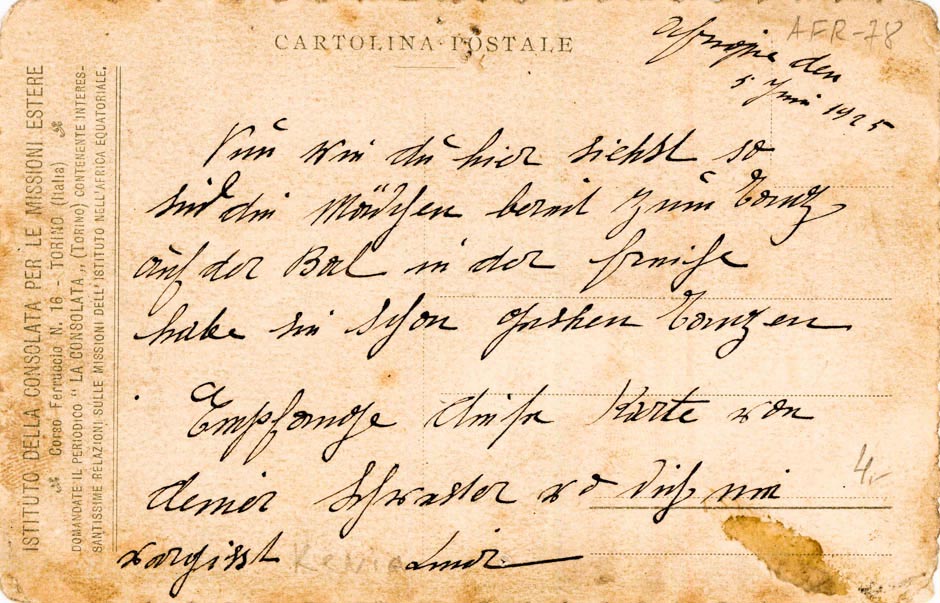 CARTOLINA POSTALE
AFR-78
den
5 Juni 1925
ISTITUTO DELLA CONSOLATA PER LE MISSIONI ESTERE
Corso Ferruccio N. 16 - TORINO (Italia)
DOMANDATE IL PERIODICO "LA CONSOLATA,, (TORINO) CONTENENTE INTERES-
SANTISSIME RELAZIONI SULLE MISSIONI DELL'ISTITUTO NELL'AFRICA EQUATORIALE.
Nun wie du hier siehst so
sind die Mädchen bereit zum Tanz
auf der Bal in der
habe sie schon gesehen Tanzen
Empfange diese Karte von
deiner Schwester wo dich nie
vergisst
4.-
Kenia